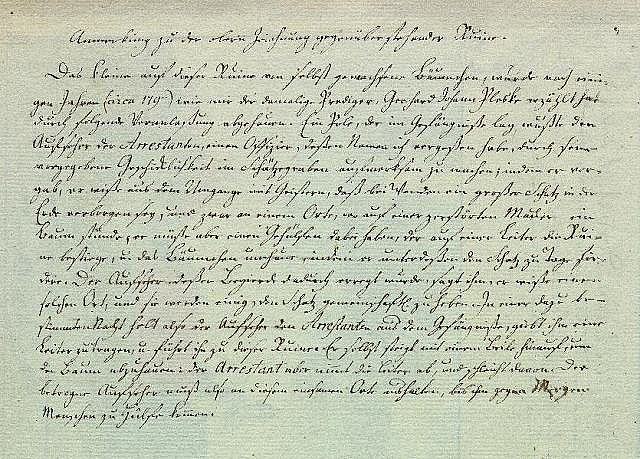 Anmerkung zu der obern Zeichnung gegenüberstehender Ruine.
Das kleine auf dieser Ruine von selbst gewachsene Bäumchen, wurde nach eini-
gen Jahren (circa 179 ) wie mir der damalige Prediger, Gerhard Johann Pleske erzählt hat
durch folgende Veranlassung abgehauen. Ein Pole, der im Gefängnisse lag, wußte den
Aufseher der Arrestanten, einen Offizier, dessen Namen ich vergessen habe, durch seine
vorgegebene Geschicklichkeit im Schätzegraben aufmerksam zu machen; indem er vor-
gab, er wisse aus dem Umgange mit Geistern, daß bei Wenden ein großer Schatz in der
Erde verborgen sey, und zwar an einem Orte, wo auf einer zerstörten Mauer ein
Baum stünde; er müßte aber einen Gehülfen dabei haben, der auf einer Leiter die Rui-
ne bestiege, u. das Bäumchen umhaue, indem er unterdessen den Schatz zu Tage för-
dere. Der Aufseher, dessen Begierde dadurch erregt wurde, sagt ihm, er wisse einen
solchen Ort, und sie werden einig den Schatz gemeinschaftl. zu heben. In einer dazu be-
stimmten Nacht holt also der Aufseher den Arrestanten aus dem Gefängnisse, giebt ihm eine
Leiter zu tragen, u. führt ihn zu dieser Ruine. Er selbst steigt mit einem Beile hinauf, um
den Baum abzuhauen; der Arrestant aber nimt die Leiter ab, und schleicht davon. Der
betrogne Aufseher muß also an diesem einsamen Orte aushalten, bis ihm gegen Morgen
Menschen zu Hülfe kamen.